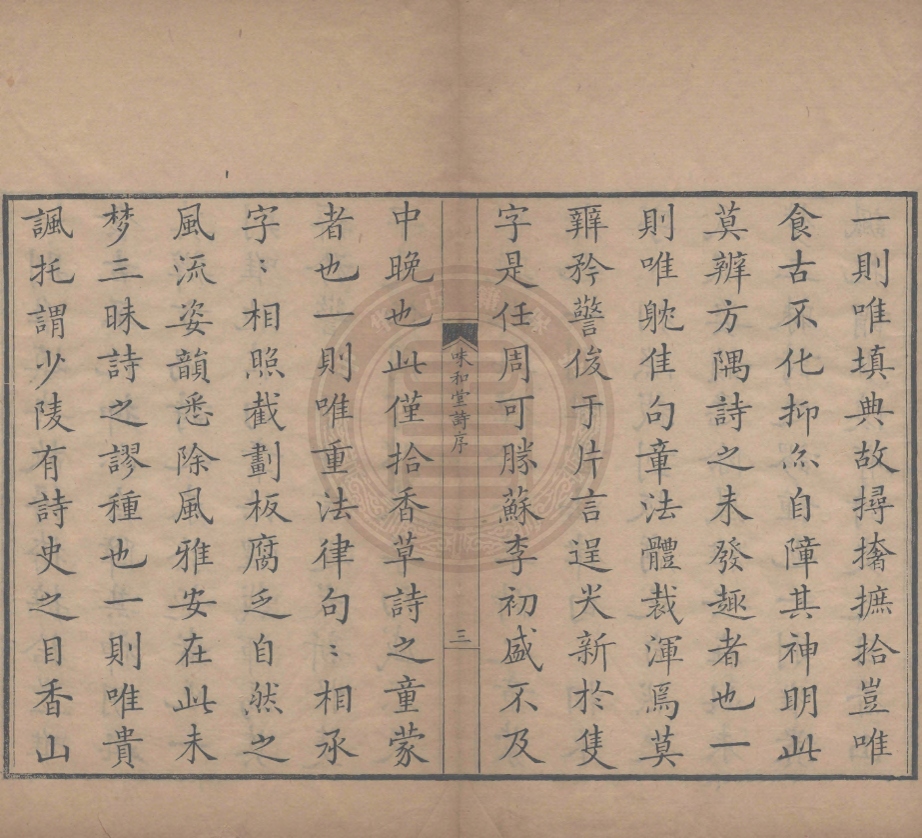 一則唯填典故撏撦摭拾豈唯
食古不化抑亦自障其神明此
莫辨方隅詩之未發趣者也一
則唯躭佳句章法體裁渾焉莫
辨矜警俊于片言逞尖新於隻
字是任周可勝蘇李初盛不及
味和堂詩序
三
中晚也此僅拾香草詩之童蒙
者也一則唯重法律句〻相承
字〻相照截劃板腐乏自然之
風流姿韻悉除風雅安在此未
梦三昧詩之謬種也一則唯貴
諷托謂少陵有詩史之目香山